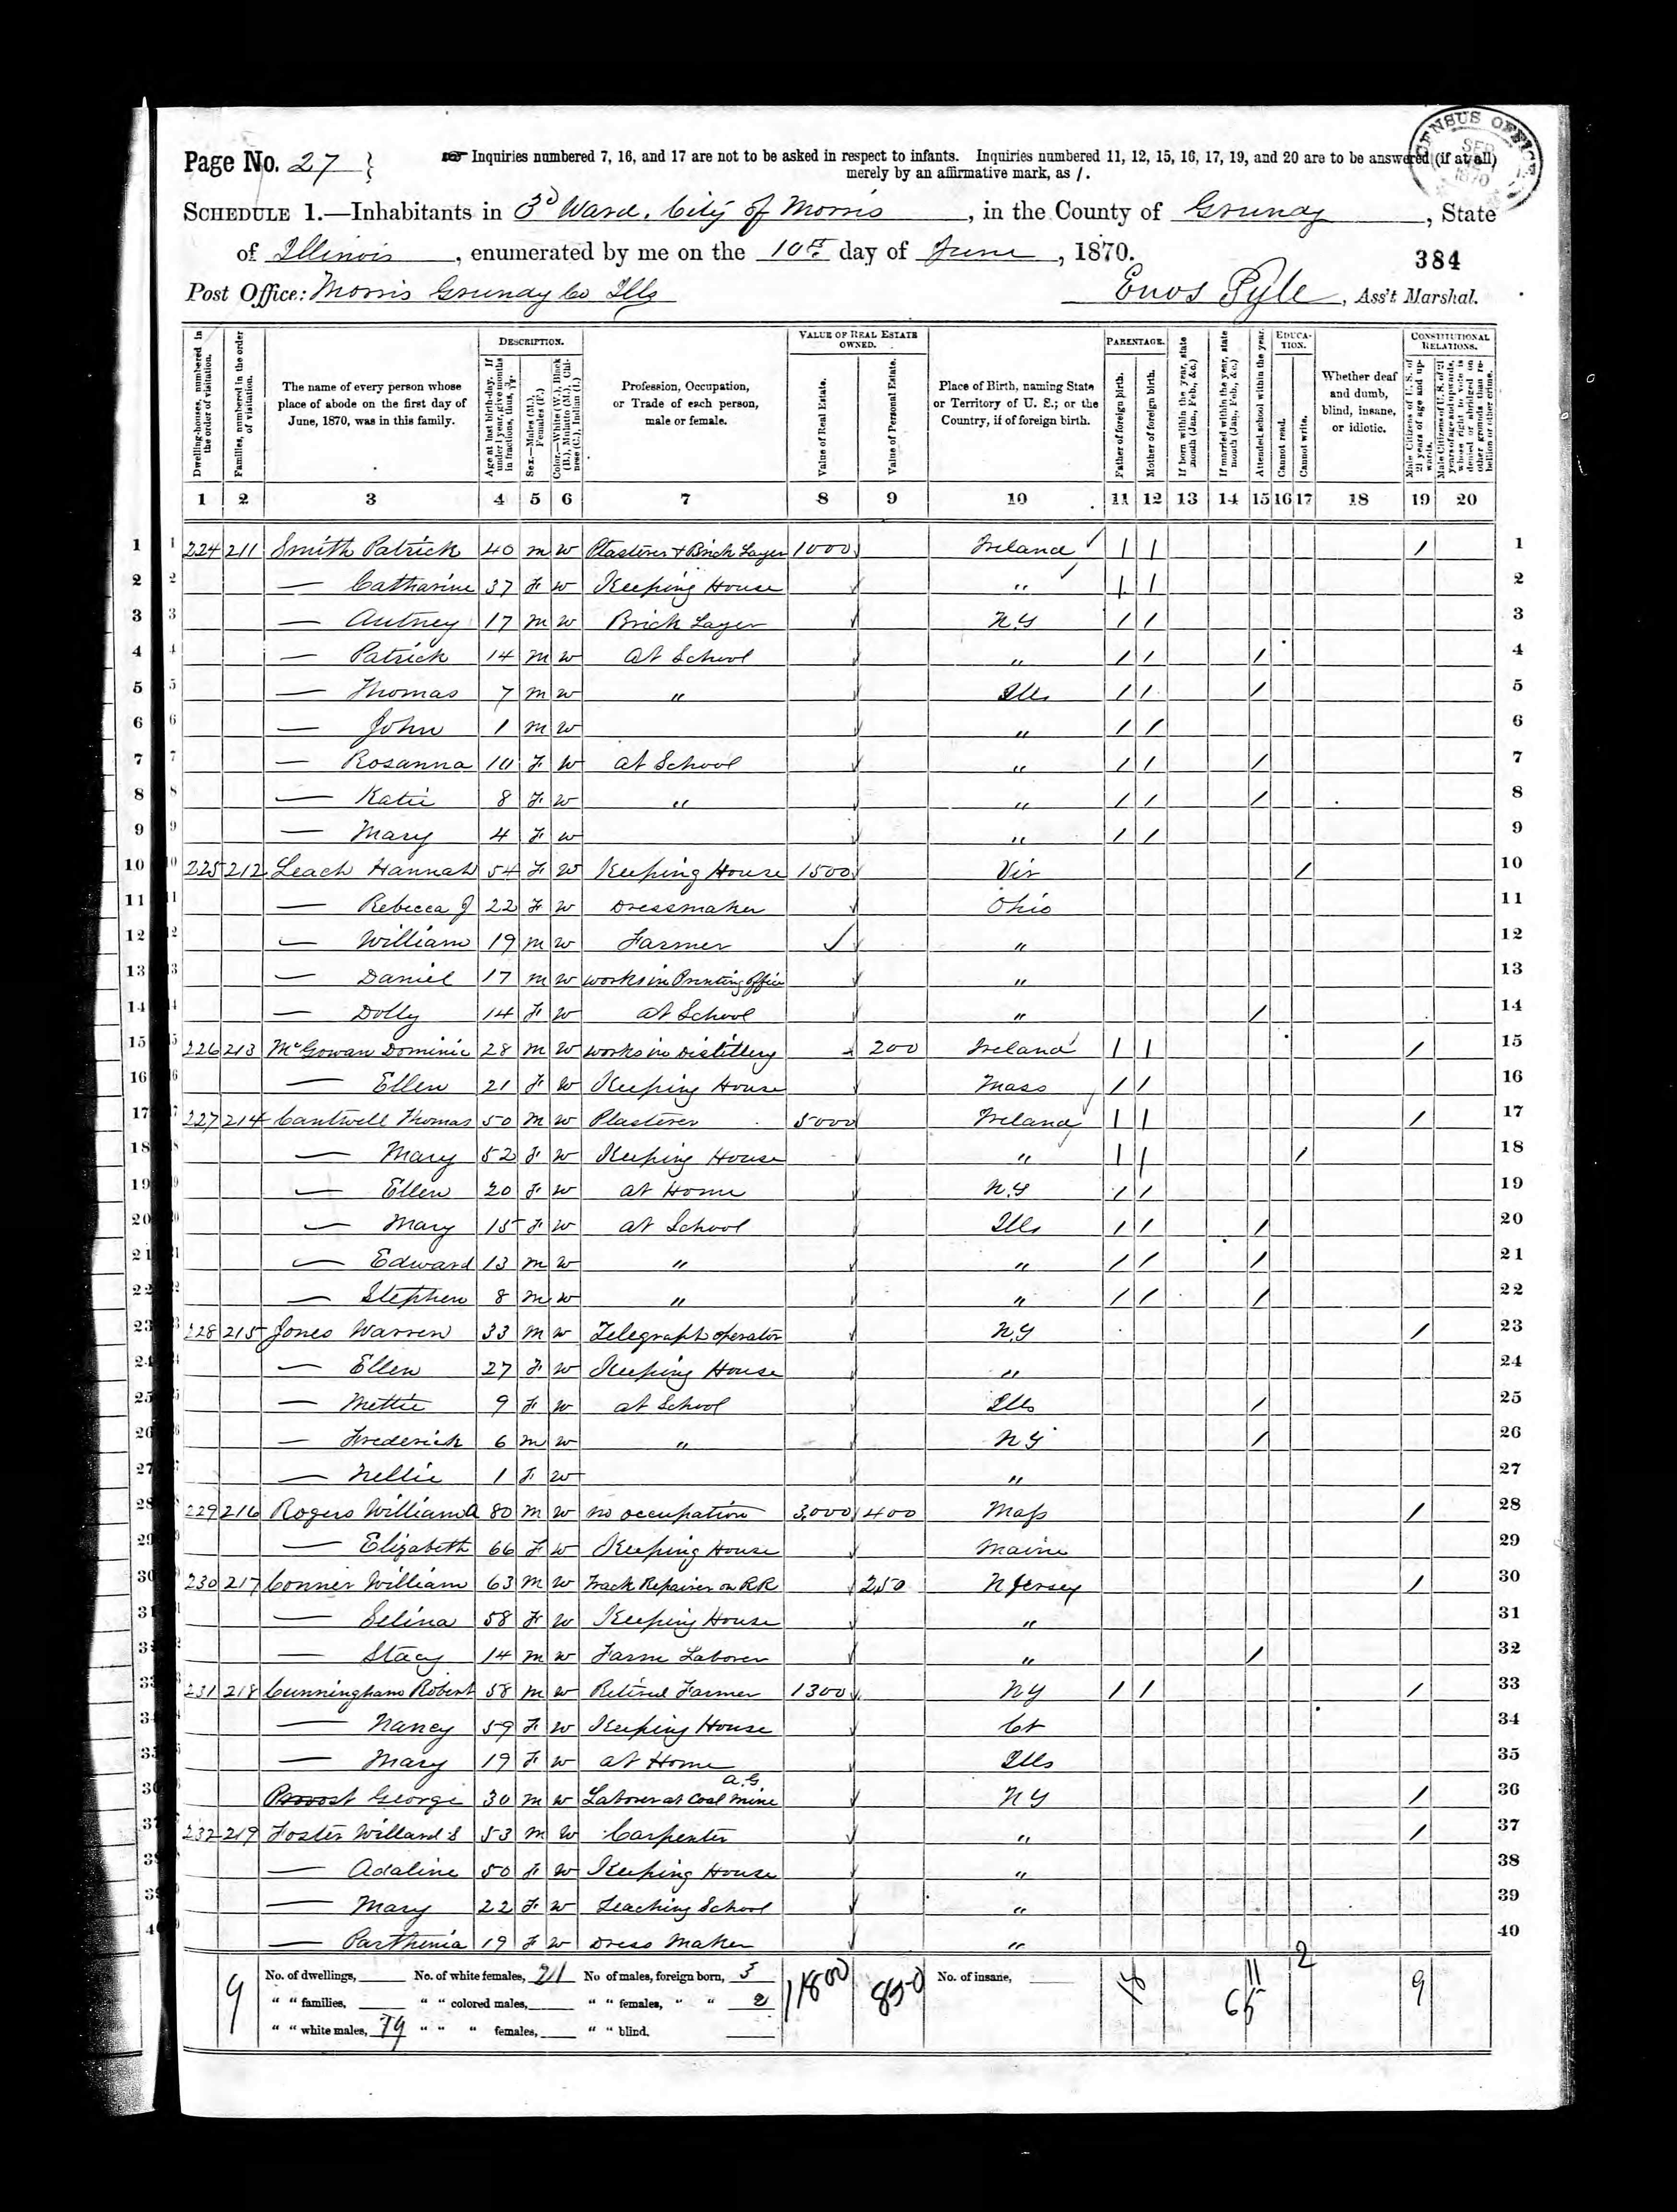 Page No. 27
Inquiries numbered 7, 16, and 17 are not to be asked in respect to infants. Inquiries numbered 11, 12, 15, 16, 17, 19, and 20 are to be answered (if at all)
merely by an affirmative mark, as /.
CENSUS OFFICE SEP 1870
SCHEDULE 1.—Inhabitants in 3d Ward, City of Morris, in the County of Grundy, State
of Illinois, enumerated by me on the 10th day of June, 1870.
384
Post Office: Morris Grundy Co Ills
Enos Pyle, Ass't Marshal.
Dwelling-houses, numbered in the order of visitation.
Families, numbered in the order of visitation.
The name of every person whose place of abode on the first day of June, 1870, was in this family.
DESCRIPTION.
Age at last birth-day. If under 1 year, give months in fractions, thus, 3/12.
Sex.—Males (M.), Females (F.)
Color.—White (W.), Black (B.), Mulatto (M.), Chinese (C.), Indian (I.)
Profession, Occupation, or Trade of each person, male or female.
VALUE OF REAL ESTATE OWNED.
Value of Real Estate.
Value of Personal Estate.
Place of Birth, naming State or Territory of U. S.; or the Country, if of foreign birth.
PARENTAGE.
Father of foreign birth.
Mother of foreign birth.
If born within the year, state month (Jan., Feb., &c.)
If married within the year, state month (Jan., Feb., &c.)
Attended school within the year.
EDUCATION.
Cannot read.
Cannot write.
Whether deaf and dumb, blind, insane, or idiotic.
CONSTITUTIONAL RELATIONS.
Male Citizens of U. S. of 21 years of age and upwards.
Male Citizens of U. S. of 21 years of age and upwards, whose right to vote is denied or abridged on other grounds than rebellion or other crime.
1 2 3 4 5 6 7 8 9 10 11 12 13 14 15 16 17 18 19 20
1 1 224 211 Smith Patrick 40 m w Plasterer & Brick Layer 1000 Ireland / / / 1
2 2 — Catharine 37 F w Keeping House " / / 2
3 3 — Autney 17 m w Brick Layer N.Y / / 3
4 4 — Patrick 14 m w at School " / / / 4
5 5 — Thomas 7 m w " Ills / / / 5
6 6 — John 1 m w " / / 6
7 7 — Rosanna 10 F w at School " / / / 7
8 8 — Katie 8 F w " " / / / 8
9 9 — Mary 4 F w " / / 9
10 10 225 212 Leach Hannah 54 F w Keeping House 1500 Vir / 10
11 11 — Rebecca J 22 F w Dressmaker Ohio 11
12 12 — William 19 m w Farmer " 12
13 13 — Daniel 17 m w works in Printing Office " 13
14 14 — Dolly 14 F w at School " / 14
15 15 226 213 McGowan Dominic 28 m w works in Distillery 200 Ireland / / / 15
16 16 — Ellen 21 F w Keeping House Mass / / 16
17 17 227 214 Cantwell Thomas 50 m w Plasterer 5000 Ireland / / / 17
18 — Mary 52 F w Keeping House " / / / 18
19 — Ellen 20 F w at Home N.Y / / 19
20 — Mary 15 F w at School Ills / / / 20
21 — Edward 13 m w " " / / / 21
22 — Stephen 8 m w " " / / / 22
23 228 215 Jones Warren 33 m w Telegraph operator N.Y / 23
24 — Ellen 27 F w Keeping House " 24
25 — Mettie 9 F w at School Ills / 25
26 — Frederick 6 m w " N Y / 26
27 — Nellie 1 F w " 27
28 229 216 Rogers William A 80 m w no occupation 3,000 400 Mass / 28
29 — Elizabeth 66 F w Keeping House Maine 29
30 230 217 Conner William 63 m w Track Repairer on RR 250 N Jersey / 30
31 — Selina 58 F w Keeping House " 31
32 — Stacy 14 m w Farm Laborer " / 32
33 231 218 Cunningham Robert 58 m w Retired Farmer 1300 N Y / / / 33
34 — Nancy 59 F w Keeping House Ct 34
35 — Mary 19 F w at Home Ills 35
a.G.
36 Provost George 30 m w Laborer at Coal mine N Y / 36
37 232 219 Foster Willard S 53 m w Carpenter " / 37
38 — Adaline 50 F w Keeping House " 38
39 — Mary 22 F w Teaching School " 39
40 — Parthenia 19 F w Dress Maker " 40
9 No. of dwellings, No. of white females, 21 No of males, foreign born, 3 11800 850 No. of insane, 18 11 2 9
" " families, " " colored males, " " females, " " 2 65
" " white males, 19 " " " females, " " blind.